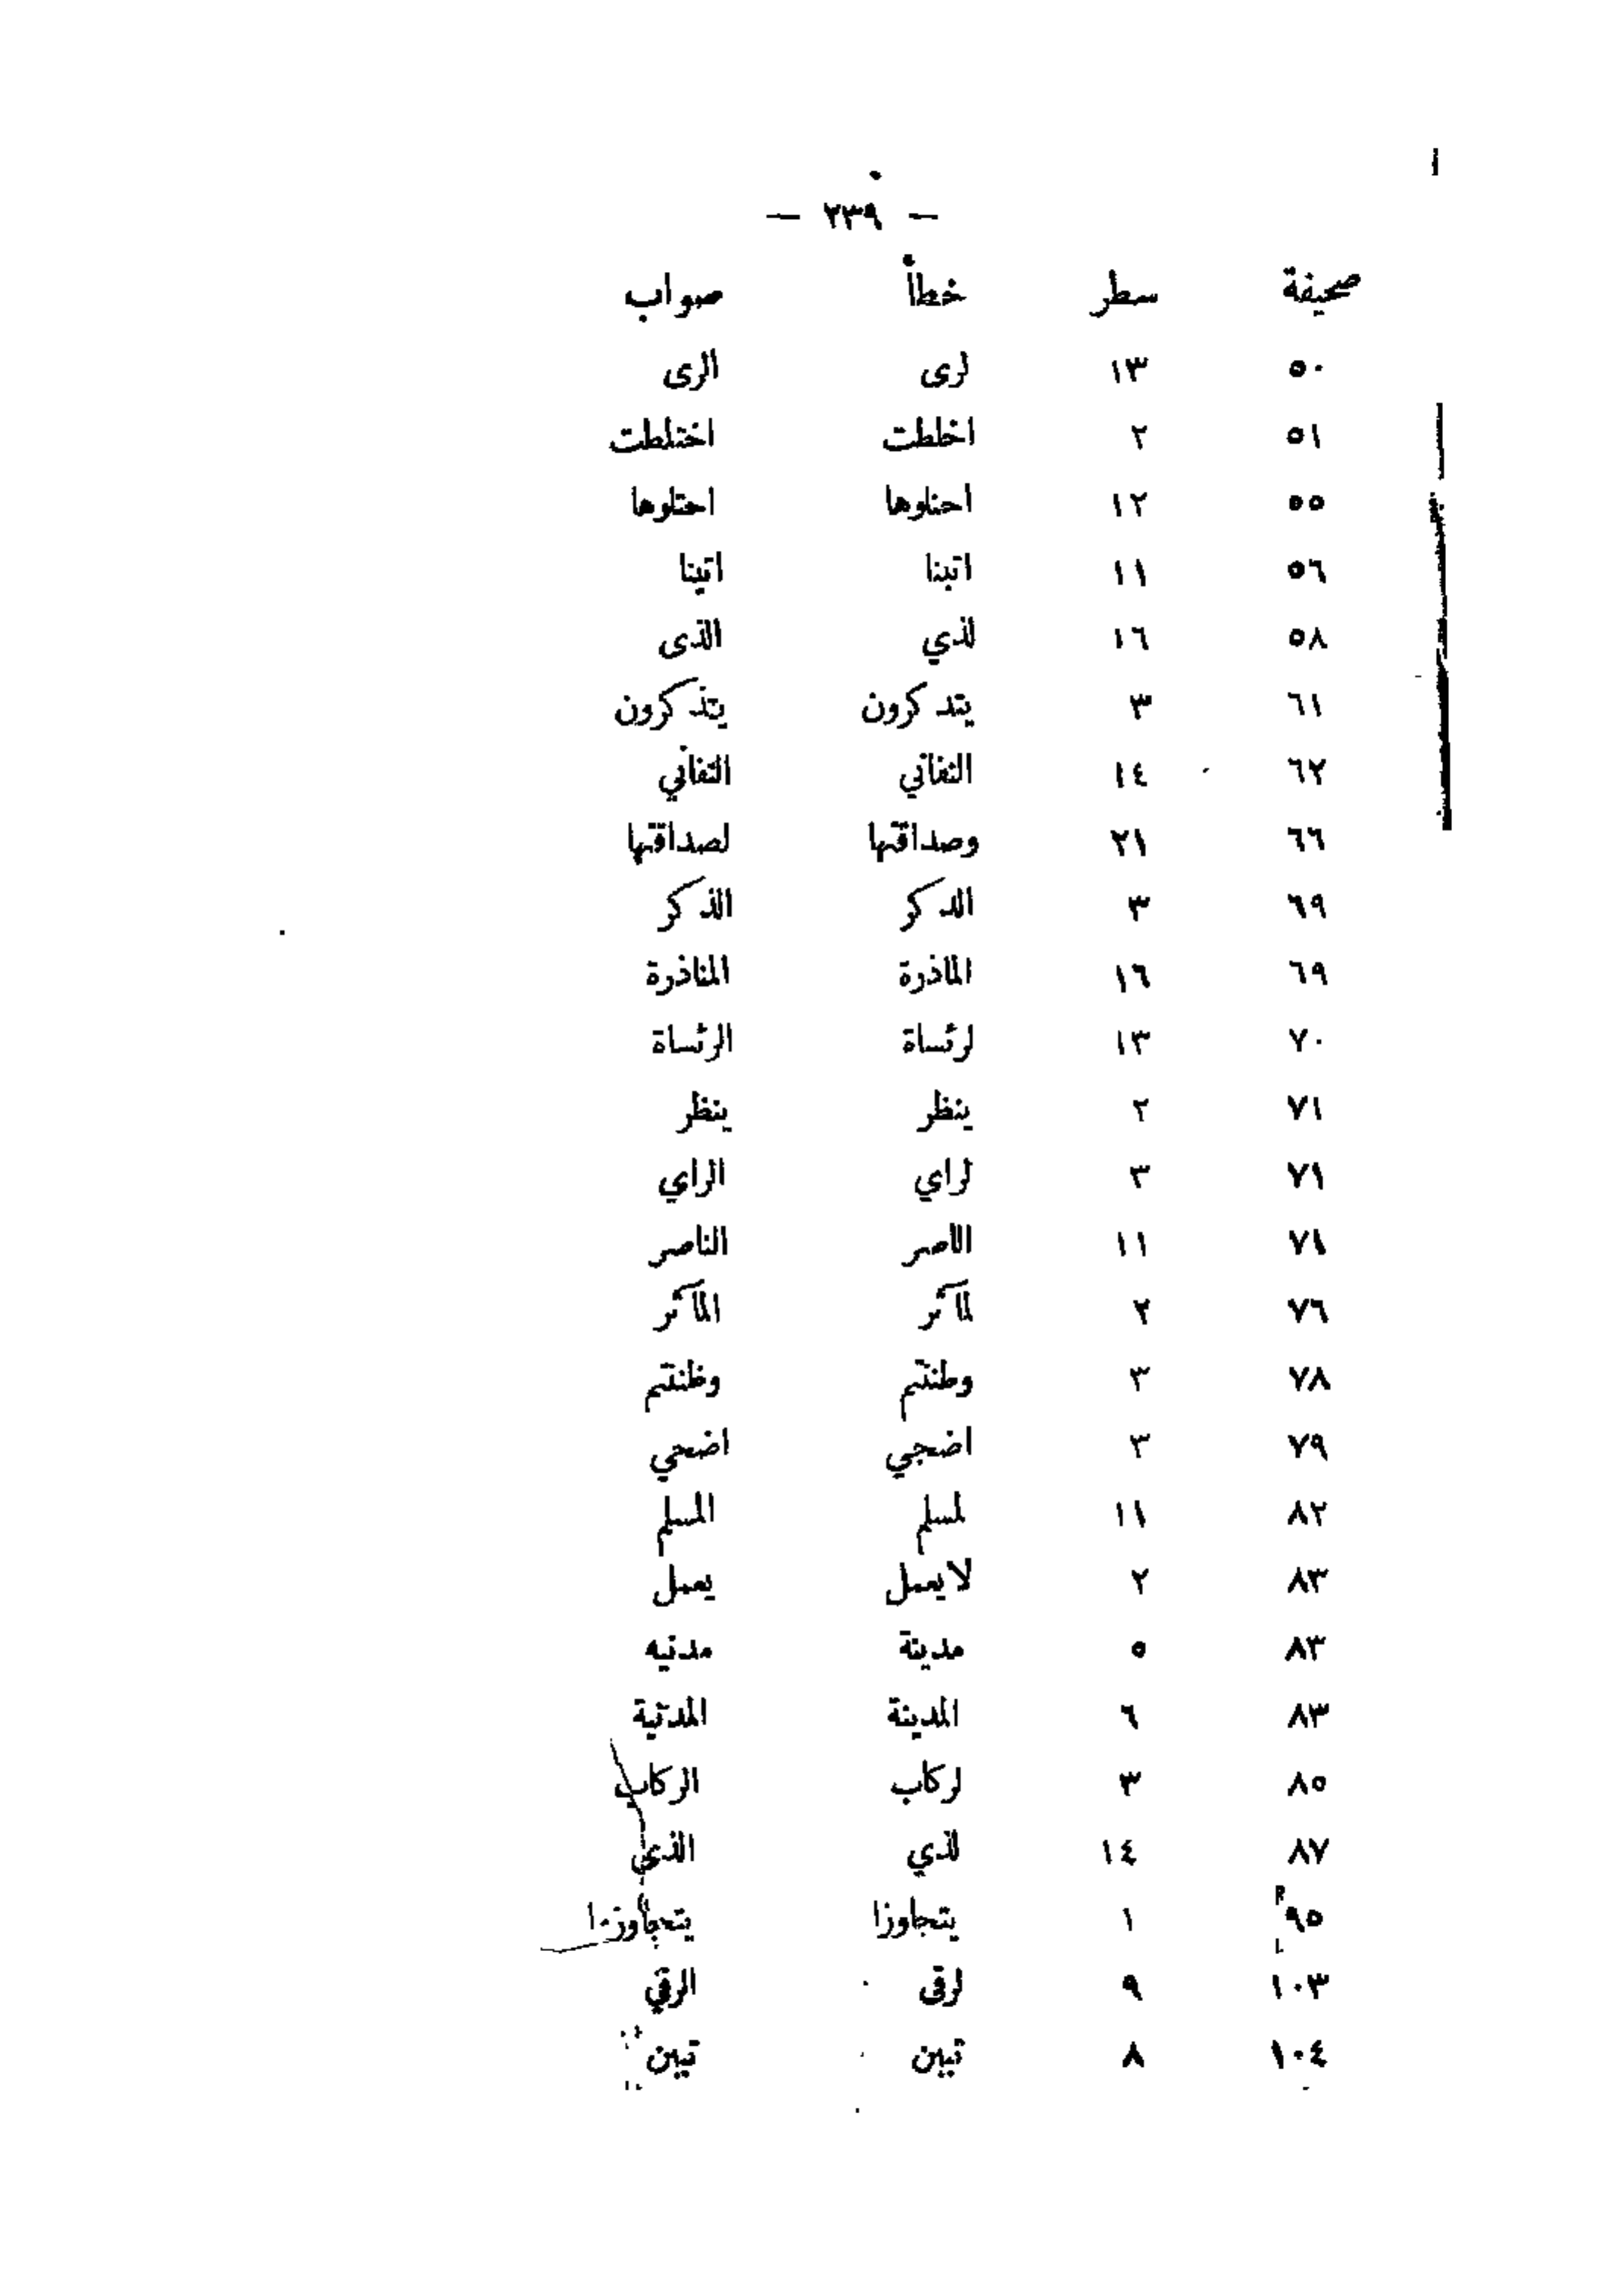 — ٢٣٩ —
صحيفة سطر خطأ صواب
٥٠ ١٣ لرى الرى
٥١ ٢ اخلطت اختلطت
٥٥ ١٢ احناوها احتلوها
٥٦ ١١ اتبنا اتينا
٥٨ ١٦ لذي الذى
٦١ ٣ يتدكرون يتذكرون
٦٢ ١٤ النفاني التفاني
٦٦ ٢١ وصداقتها لصداقتها
٦٩ ٣ الدكر الذكر
٦٩ ١٦ الماذرة المناذرة
٧٠ ١٣ لرئساة الرئساة
٧١ ٢ ينظر ينظر
٧١ ٣ لراي الراي
٧٤ ١١ الاصر الناصر
٧٦ ٢ لمآثر المآثر
٧٨ ٣ وطنتم وظنتم
٧٩ ٣ اضجي اضحي
٨٢ ١١ لمسلم المسلم
٨٣ ٢ لايعمل يعمل
٨٣ ٥ مدينة مدنيه
٨٣ ٦ المدينة المدنية
٨٥ ٣ لركاب الركاب
٨٧ ١٤ لذي الذي
٩٥ ١ يتجاوزا يتجاوزا
١٠٣ ٩ لرقى الرقي
١٠٤ ٨ تبين تبين